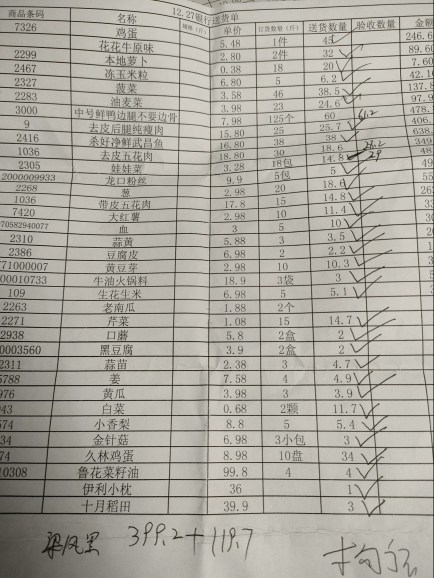 12.27银行送货单
商品条码 名称 单价 订货数量（斤） 送货数量 验收数量 金额
7326 鸡蛋 5.48 1件 45 246.6
花花牛原味 2.80 2件 32 89.60
2299 本地萝卜 0.38 18 20 7.60
2467 冻玉米粒 6.80 5 6.2 42.16
2327 菠菜 3.58 46 38.5 137.8
2283 油麦菜 3.98 23 24.6 97.9
3000 中号鲜鸭边腿不要边骨 7.98 125个 60 61.2 478.
9 去皮后腿纯瘦肉 15.80 25 25.7 406.
2416 杀好净鲜武昌鱼 16.80 38 38 638.
1036 去皮五花肉 18.80 30 18.6 349
2305 娃娃菜 3.28 18包 14.8 48
2000009933 龙口粉丝 9.9 5包 5 49
2268 葱 2.98 20 18.6 55
1036 带皮五花肉 17.8 15 14.8 263
7420 大红薯 2.98 10 11.4
70582940077 血 3 5 10
2310 蒜黄 5.88 3 3.5
2386 豆腐皮 6.98 2 2.2
771000007 黄豆芽 2.98 10 10.3
00010733 牛油火锅料 18.9 3袋 3
109 生花生米 6.98 5 5.1
2263 老南瓜 1.88 2个
2271 芹菜 1.08 15 14.7
2938 口蘑 5.8 2盒 2
0003560 黑豆腐 3.9 2盒 2
2311 蒜苗 2.38 3 4.7
5788 姜 7.58 4 4.9
976 黄瓜 3.98 3 3.9
943 白菜 0.68 2颗 11.7
574 小香梨 8.8 5 5.4
34 金针菇 6.98 3小包 3
74 久林鸡蛋 8.98 10盘 34
10308 鲁花菜籽油 99.8 4 4
伊利小枕 36 1
十月稻田 39.9 3
399.2+119.7